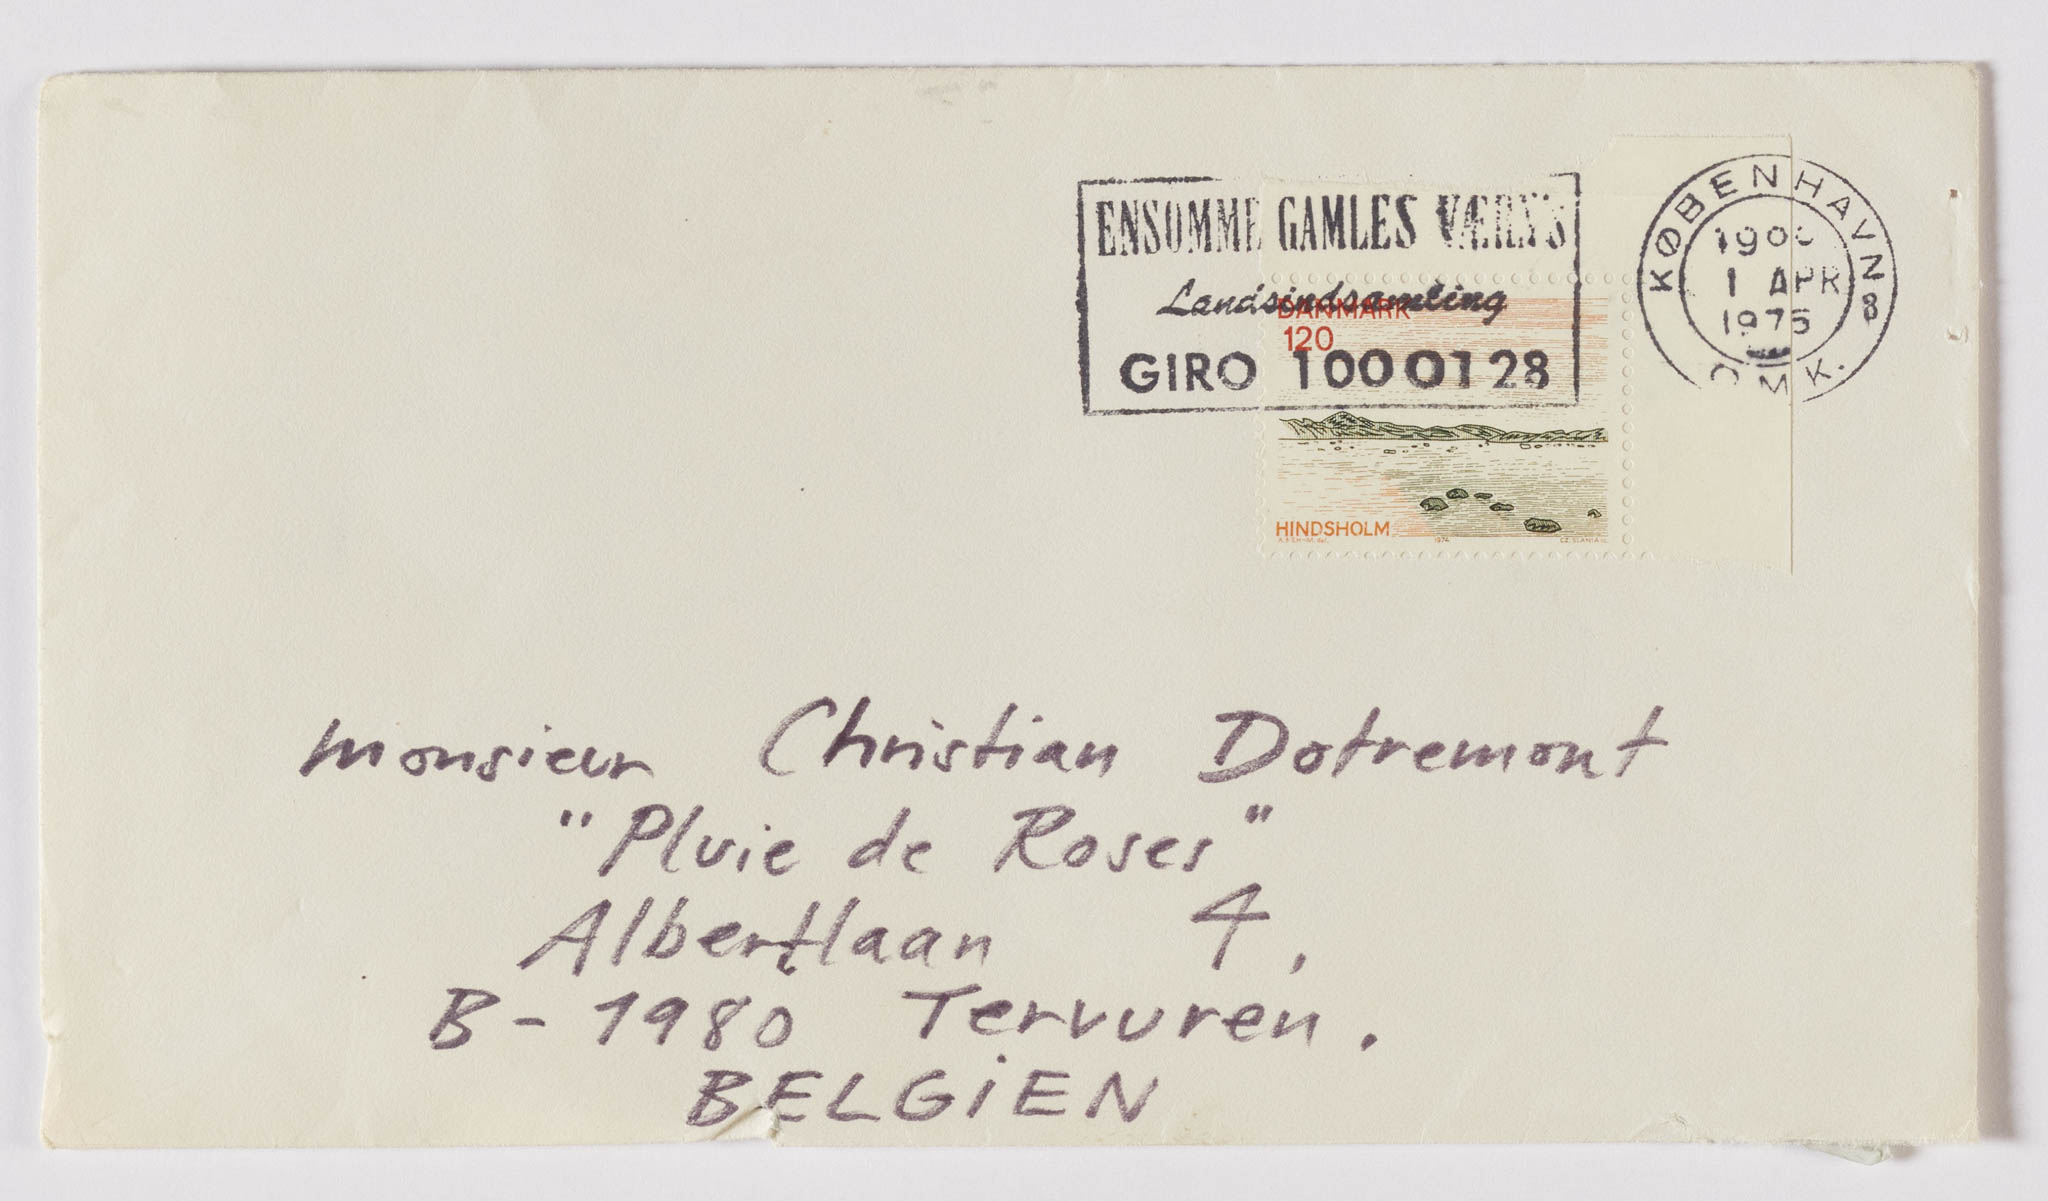 ENSOMME GAMLES VÆRN'S
Landsindsamling
GIRO 1 00 01 28
KØBENHAVN 8
1 APR
1975
OMK.
DANMARK
120
HINDSHOLM
1974
CZ. SLANIA sc.
Monsieur Christian Dotremont
"Pluie de Roses"
Albertlaan 4,
B-1980 Tervuren.
BELGiEN